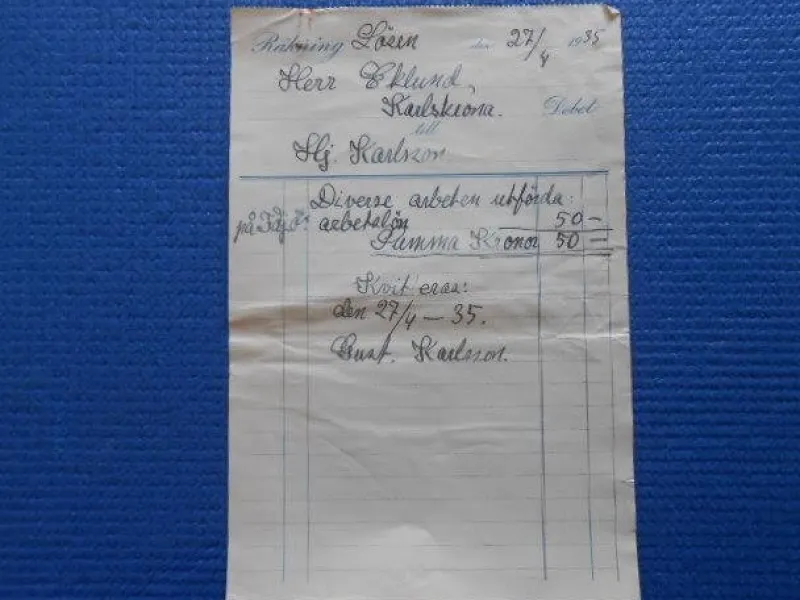 Räkning Lösen den 27/4 1935
Herr Eklund,
Karlskrona. Debet
till
Hj. Karlsson
Diverse arbeten utförda:
på arbetslön 50 —
Summa Kronor 50 —
Kviteras:
den 27/4 — 35.
Gust. Karlsson.